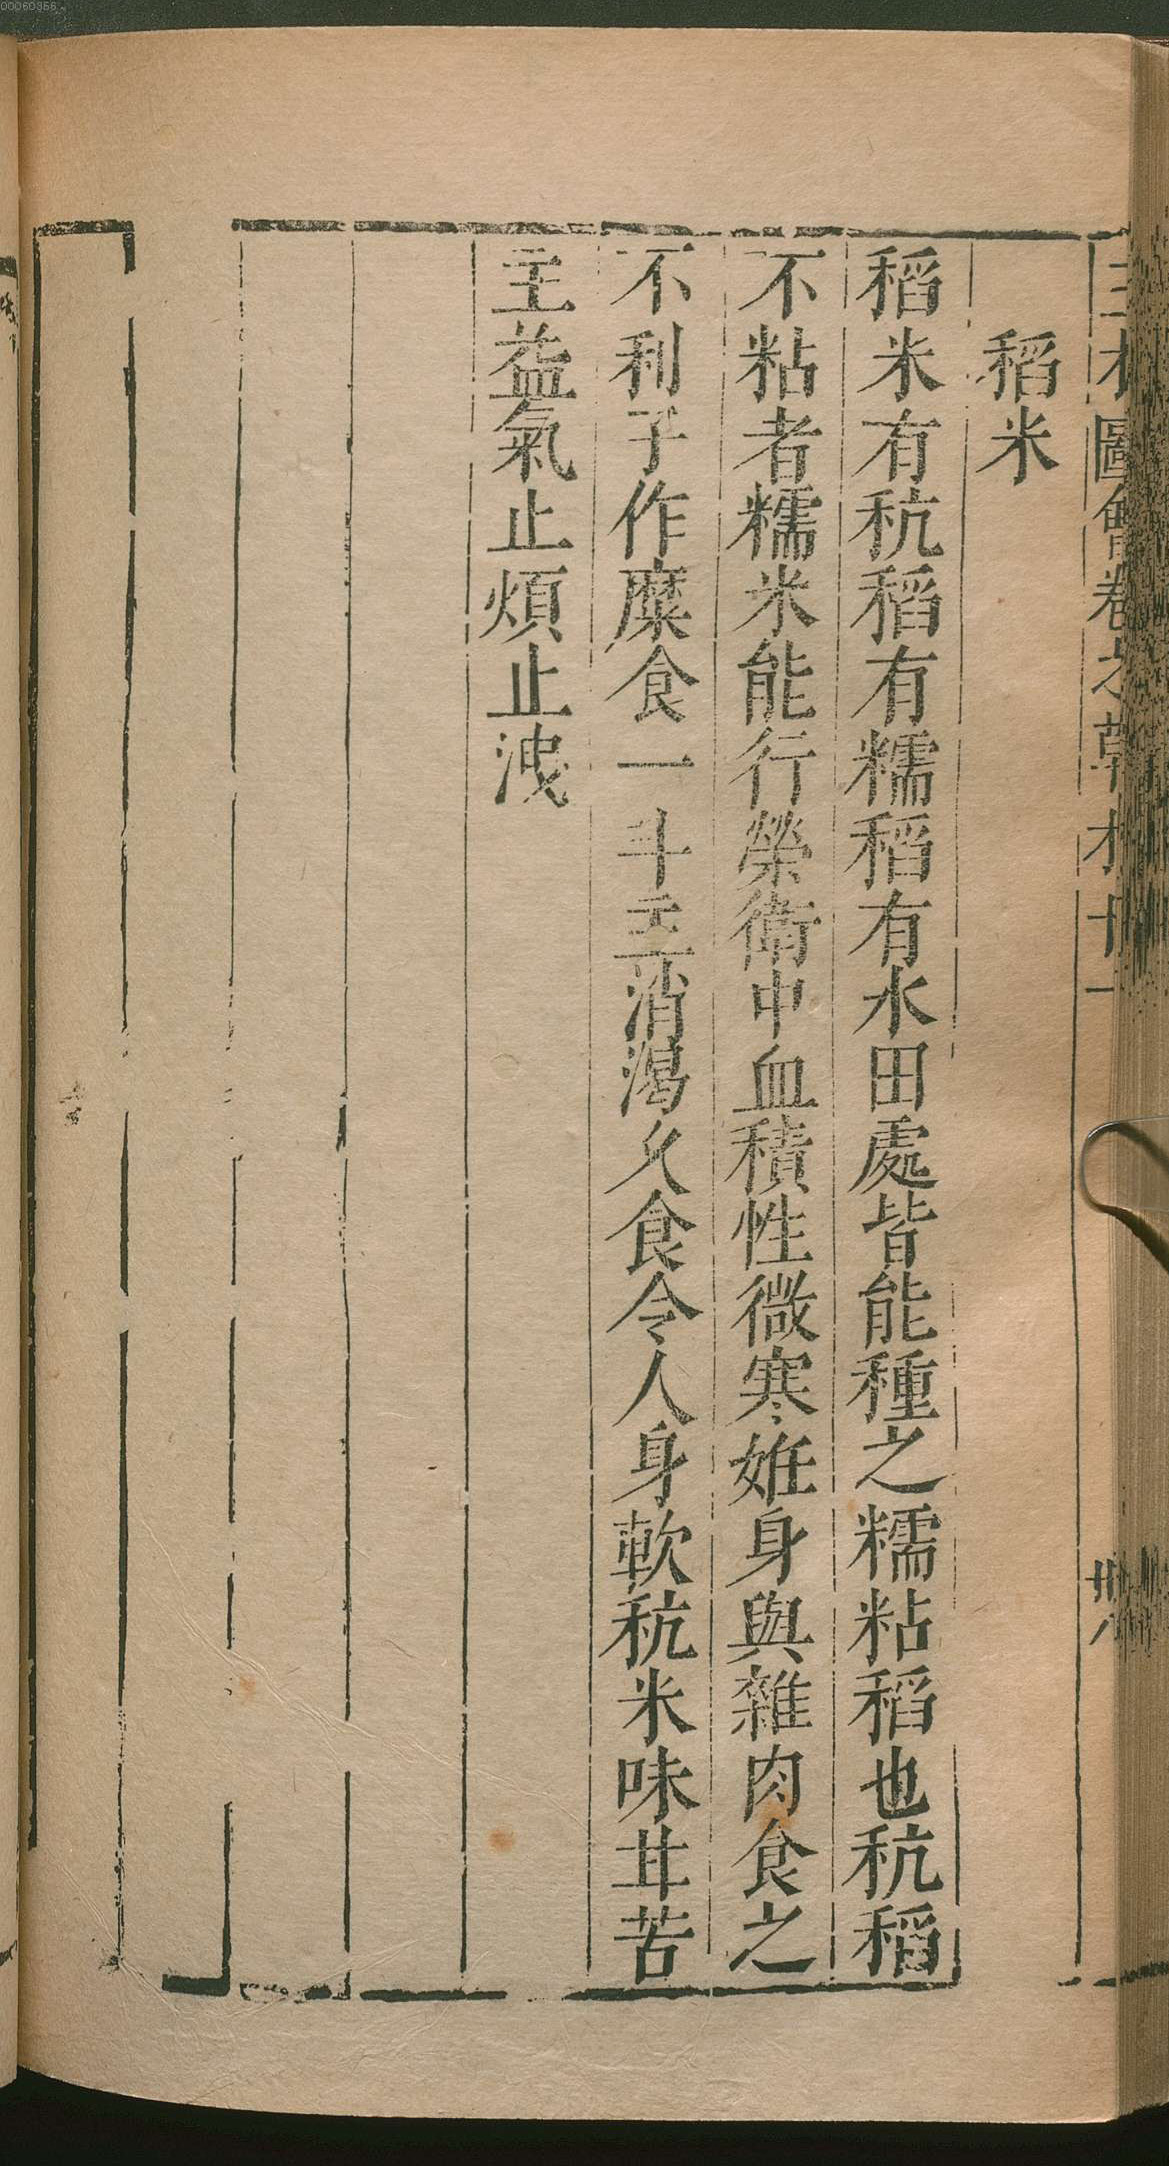 00060356
稻米
稻米有秔稻有糯稻有水田處皆能種之糯粘稻也秔稻
不粘者糯米能行榮衛中血積性微寒姙身與雜肉食之
不利子作糜食一斗主消渴久食令人身軟秔米味甘苦
主益氣止煩止洩